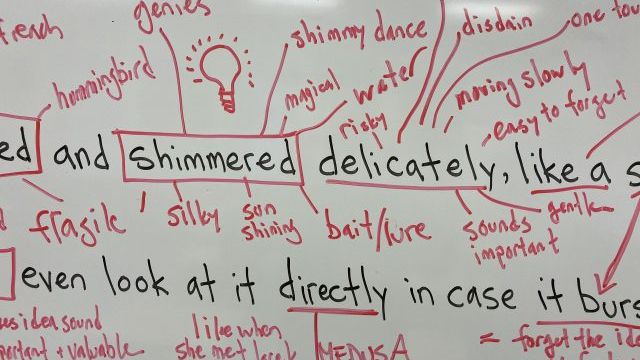 french
genies
shimmy dance
disdain
hommingbird
magical
water
risky
moving slowly
easy to forget
and shimmered delicately, like a
fragile
silky
sun
shining
bait/lure
sounds
important
gentle
even look at it directly in case it
idea sound
+ valuable
like when
she met
MEDUSA
= forget the